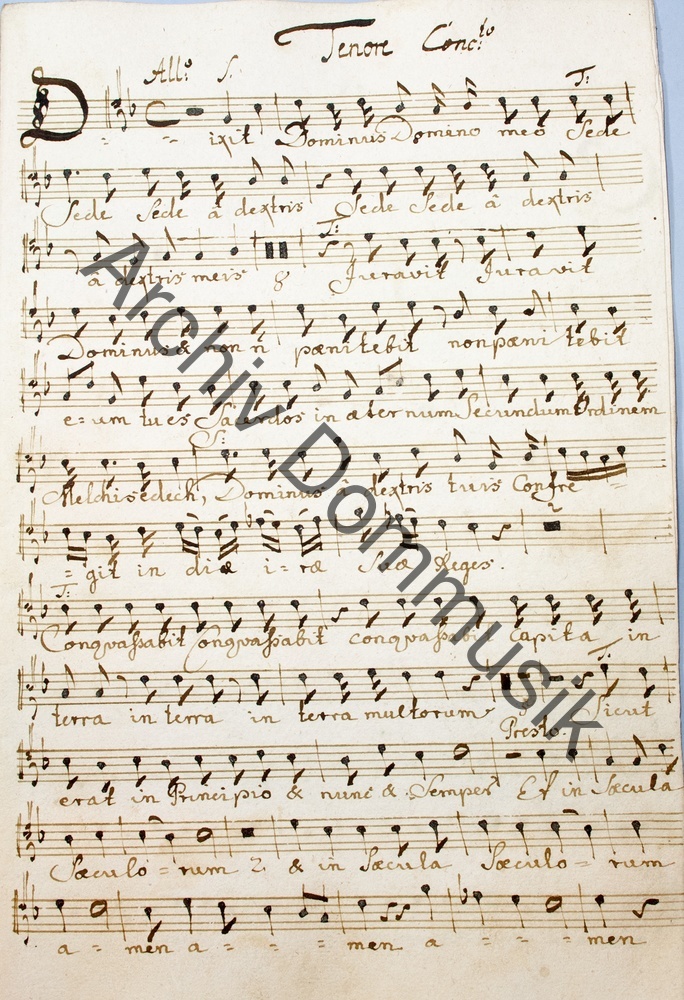 Tenore Conc:to
All:o S:
T:
Dixit Dominus Domino meo Sede
Sede Sede â dextris Sede Sede â dextris
T:
â dextris meis 8 Juravit Juravit
Dominus & non pænitebit non pænitebit
e=um tu es Sacerdos in æternum Secundum Ordinem
S:
Melchisedech, Dominus â dextris tuis Confre=
2
=git in diæ i=ræ Suæ Reges.
T:
Conquaßabit Conquaßabit conquaßabit capita in
T:
terra in terra in terra multorum Sicut
Presto.
erat in Principio & nunc & Semper Et in Sæcula
Sæculo=rum 2 & in Sæcula Sæculo=rum
a = men a = = = men a = = = men
Archiv Dommusik